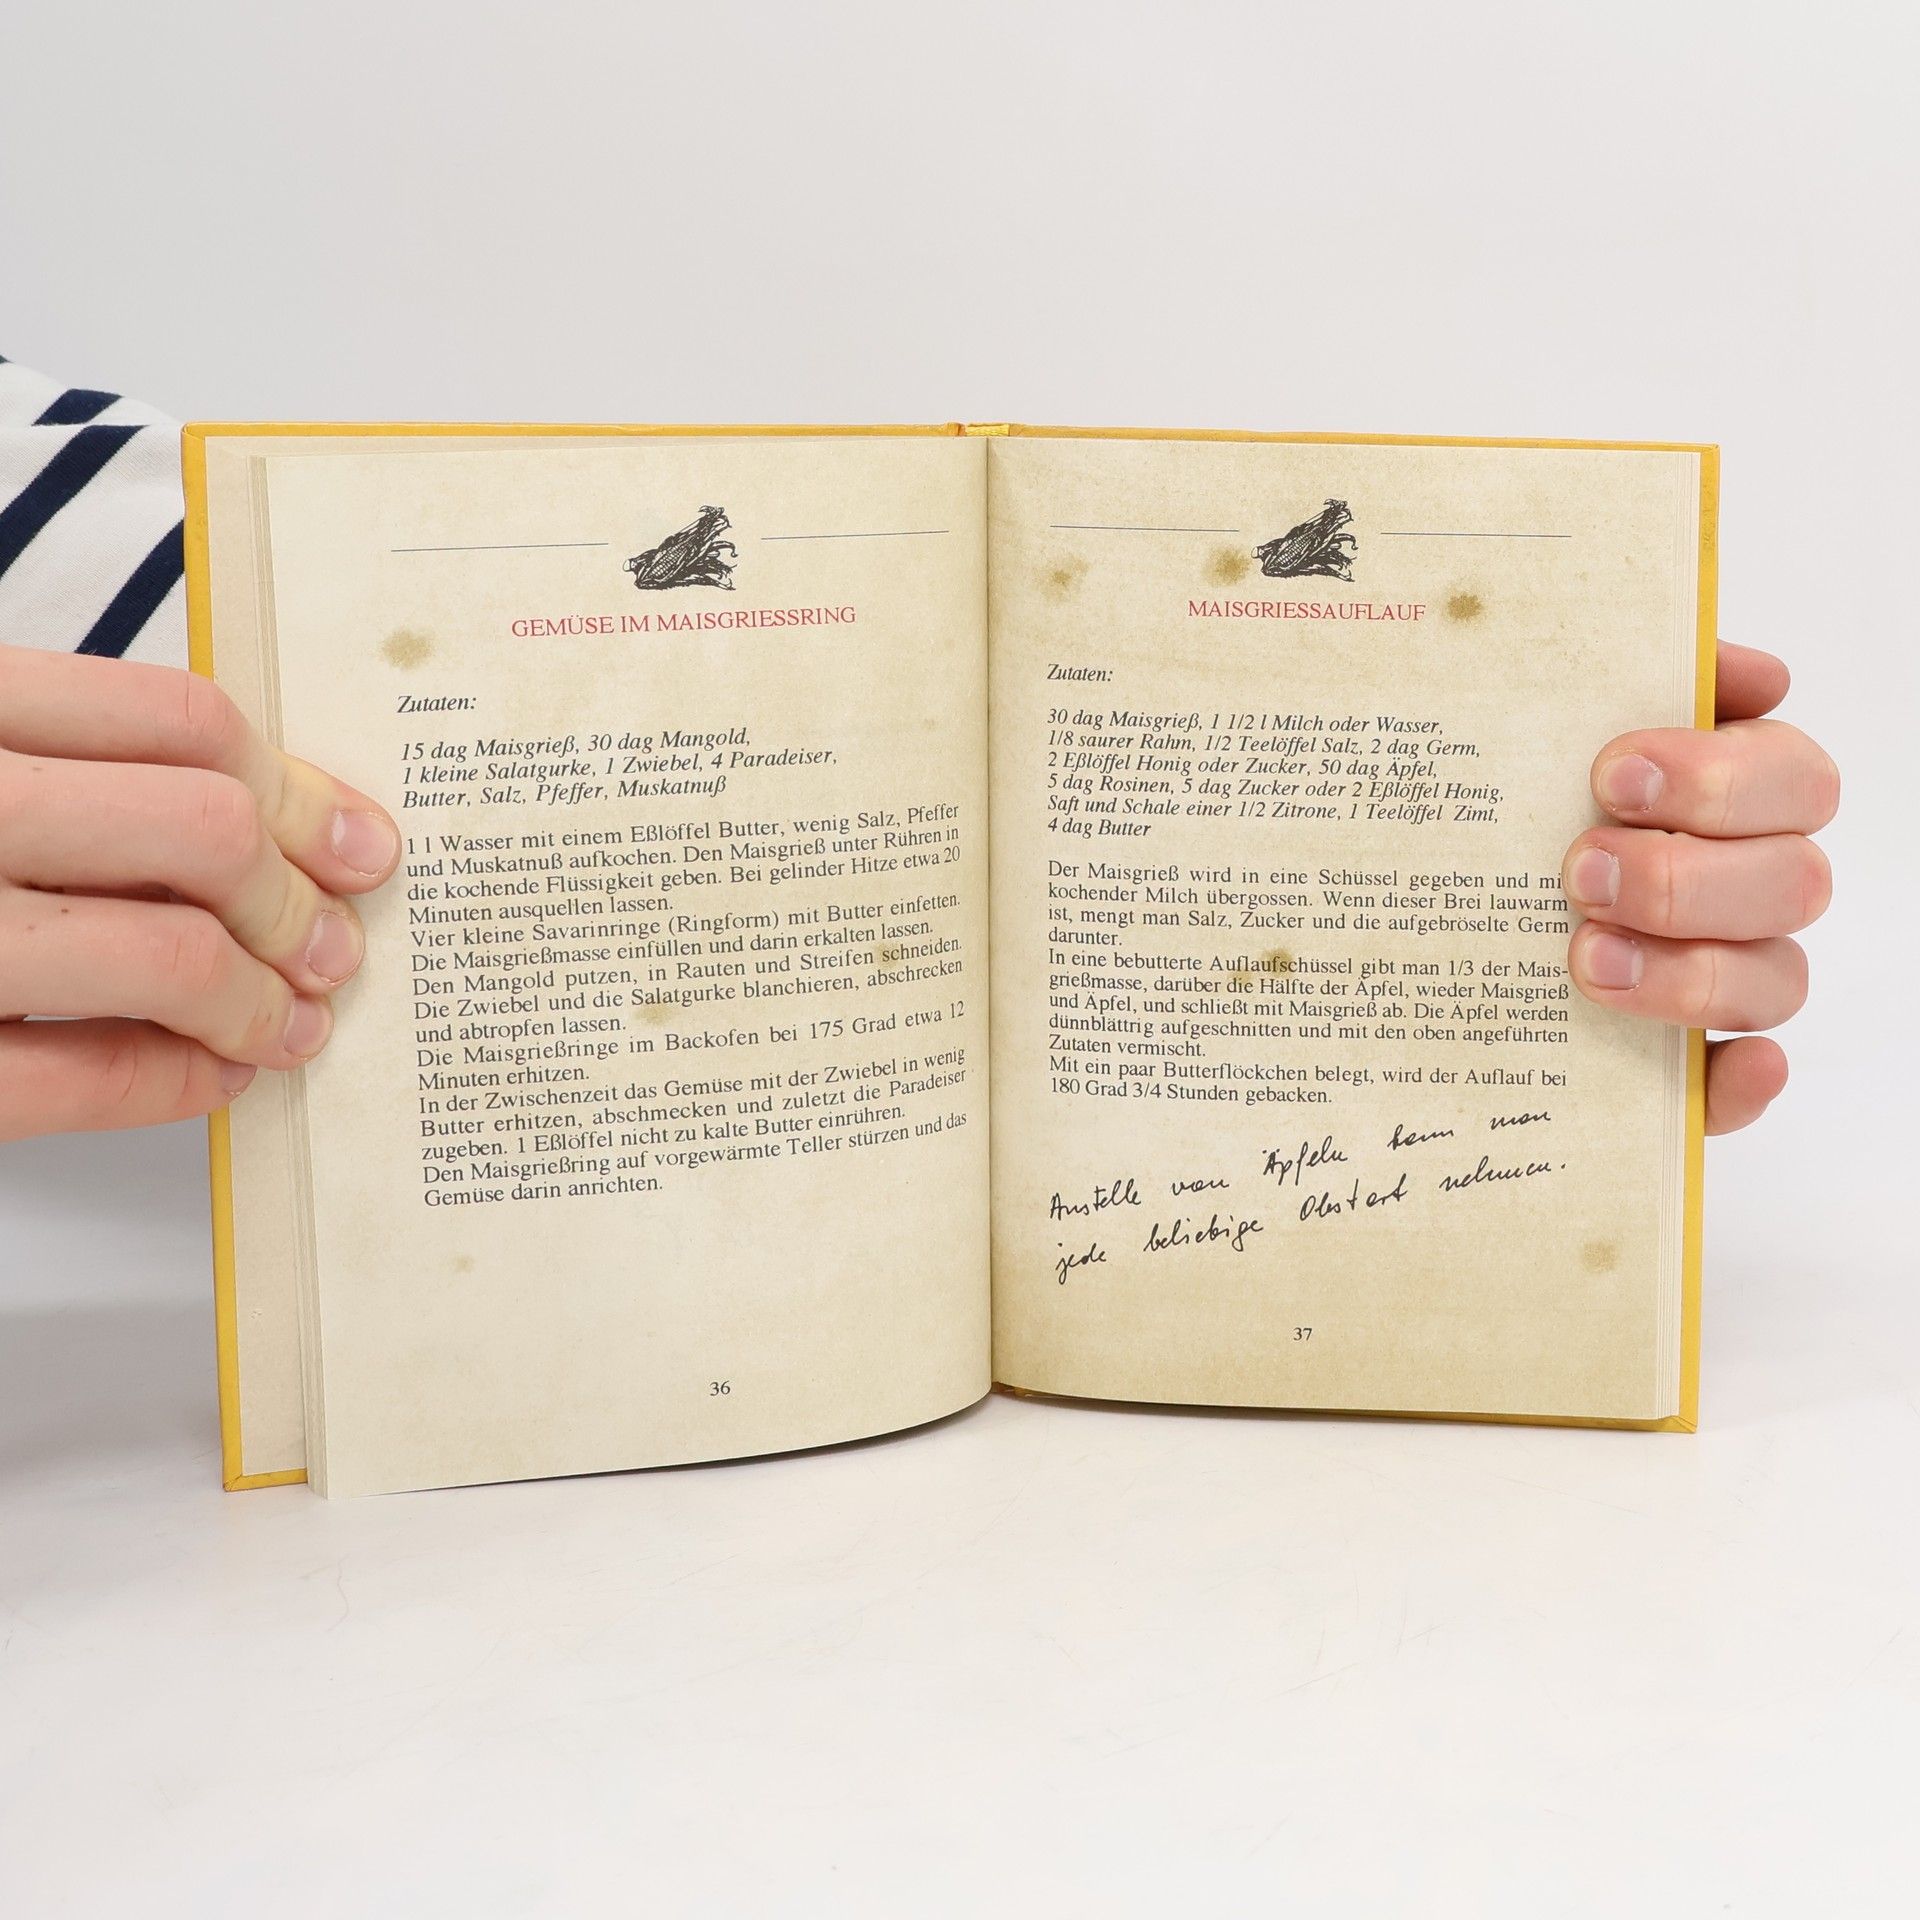 GEMÜSE IM MAISGRIESSRING
Zutaten:
15 dag Maisgrieß, 30 dag Mangold,
1 kleine Salatgurke, 1 Zwiebel, 4 Paradeiser,
Butter, Salz, Pfeffer, Muskatnuß
1 l Wasser mit einem Eßlöffel Butter, wenig Salz, Pfeffer
und Muskatnuß aufkochen. Den Maisgrieß unter Rühren in
die kochende Flüssigkeit geben. Bei gelinder Hitze etwa 20
Minuten ausquellen lassen.
Vier kleine Savarinringe (Ringform) mit Butter einfetten.
Die Maisgrießmasse einfüllen und darin erkalten lassen.
Den Mangold putzen, in Rauten und Streifen schneiden.
Die Zwiebel und die Salatgurke blanchieren, abschrecken
und abtropfen lassen.
Die Maisgrießringe im Backofen bei 175 Grad etwa 12
Minuten erhitzen.
In der Zwischenzeit das Gemüse mit der Zwiebel in wenig
Butter erhitzen, abschmecken und zuletzt die Paradeiser
zugeben. 1 Eßlöffel nicht zu kalte Butter einrühren.
Den Maisgrießring auf vorgewärmte Teller stürzen und das
Gemüse darin anrichten.
36
MAISGRIESSAUFLAUF
Zutaten:
30 dag Maisgrieß, 1 1/2 l Milch oder Wasser,
1/8 saurer Rahm, 1/2 Teelöffel Salz, 2 dag Germ,
2 Eßlöffel Honig oder Zucker, 50 dag Äpfel,
5 dag Rosinen, 5 dag Zucker oder 2 Eßlöffel Honig,
Saft und Schale einer 1/2 Zitrone, 1 Teelöffel Zimt,
4 dag Butter
Der Maisgrieß wird in eine Schüssel gegeben und mi
kochender Milch übergossen. Wenn dieser Brei lauwarm
ist, mengt man Salz, Zucker und die aufgebröselte Germ
darunter.
In eine bebutterte Auflaufschüssel gibt man 1/3 der Mais-
grießmasse, darüber die Hälfte der Äpfel, wieder Maisgrieß
und Äpfel, und schließt mit Maisgrieß ab. Die Äpfel werden
dünnblättrig aufgeschnitten und mit den oben angeführten
Zutaten vermischt.
Mit ein paar Butterflöckchen belegt, wird der Auflauf bei
180 Grad 3/4 Stunden gebacken.
Anstelle von Äpfeln kann man
jede beliebige Obstart nehmen.
37